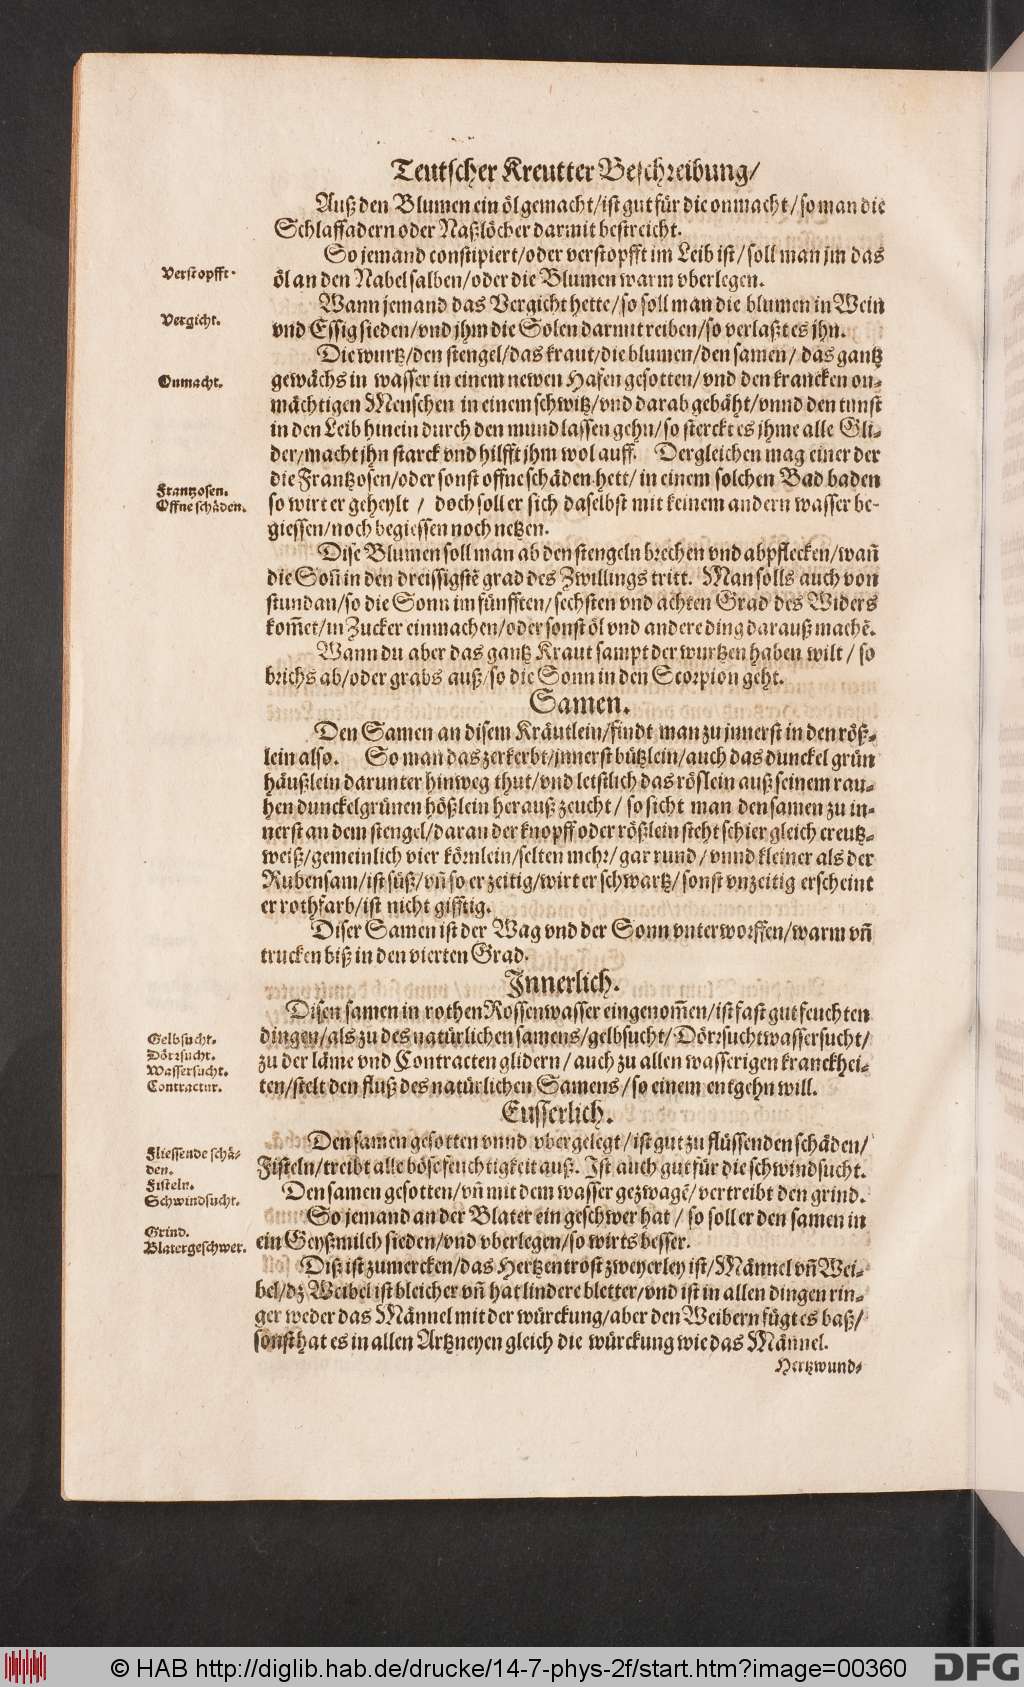 Teutscher Kreutter Beschreibung/
Auß den Blumen ein öl gemacht/ist gut für die onmacht/so man die
Schlaffadern oder Naßlöcher darmit bestreicht.
So jemand constipiert/oder verstopfft im Leib ist/soll man jm das
öl an den Nabel salben/oder die Blumen warm vberlegen.
Verstopfft.
Wann jemand das Vergicht hette/so soll man die blumen in Wein
vnd Essig sieden/vnd jhm die Solen darmit reiben/so verlaßt es jhn.
Vergicht.
Die wurtz/den stengel/das kraut/die blumen/den samen/das gantz
gewächs in wasser in einem newen Hafen gesotten/vnd den krancken on-
Onmacht.
mächtigen Menschen in einem schwitz/vnd darab gebäht/vnnd den tunst
in den Leib hinein durch den mund lassen gehn/so sterckt es jhme alle Gli-
der/macht jhn starck vnd hilfft jhm wol auff. Dergleichen mag einer der
die Frantzosen/oder sonst offne schäden hett/in einem solchen Bad baden
Frantzosen.
Offne schäden.
so wirt er geheylt / doch soll er sich daselbst mit keinem andern wasser be-
giessen/noch begiessen noch netzen.
Dise Blumen soll man ab den stengeln brechen vnd abpflecken/wañ
die Soñ in den dreissigstẽ grad des Zwillings tritt. Man solls auch von
stundan/so die Sonn im fünfften/sechsten vnd achten Grad des Widers
kom̃et/in Zucker einmachen/oder sonst öl vnd andere ding darauß machẽ.
Wann du aber das gantz Kraut sampt der wurtzen haben wilt / so
brichs ab/oder grabs auß/so die Sonn in den Scorpion geht.
Samen.
Den Samen an disem Kräutlein/findt man zu jnnerst in den röß-
lein also. So man das zerkerbt/jnnerst bützlein/auch das dunckel grün
häußlein darunter hinweg thut/vnd letstlich das röslein auß seinem rau-
hen dunckelgrünen hößlein herauß zeucht/ so sicht man den samen zu in-
nerst an dem stengel/daran der knopff oder rößlein steht schier gleich creutz-
weiß/gemeinlich vier körnlein/selten mehr/gar rund/vnnd kleiner als der
Rubensam/ist süß/vñ so er zeitig/wirt er schwartz/sonst vnzeitig erscheint
er rothfarb/ist nicht gifftig.
Diser Samen ist der Wag vnd der Sonn vnterworffen/warm vñ
trucken biß in den vierten Grad.
Innerlich.
Disen samen in rothen Rossenwasser eingenom̃en/ist fast gut feuchten
dingen/als zu des natürlichen samens/gelbsucht/Dörrsucht wassersucht/
zu der läme vnd Contracten glidern/auch zu allen wasserigen kranckhei-
ten/stelt den fluß des natürlichen Samens/so einem entgehn will.
Gelbsucht.
Dörrsucht.
Wassersucht.
Contractur.
Eusserlich.
Den samen gesotten vnnd vbergelegt/ist gut zu flüssenden schäden/
Fisteln/treibt alle böse feuchtigkeit auß. Ist auch gut für die schwindsucht.
Fliessende schä-
den.
Fisteln.
Schwindsucht.
Den samen gesotten/vñ mit dem wasser gezwagẽ/vertreibt den grind.
So jemand an der Blater ein geschwer hat / so soll er den samen in
ein Geyßmilch sieden/vnd vberlegen/so wirts besser.
Grind.
Blatergeschwer.
Diß ist zumercken/das Hertzentrost zweyerley ist/Männel vñ Wei-
bel/dz Weibel ist bleicher vñ hat lindere bletter/vnd ist in allen dingen rin-
ger weder das Männel mit der würckung/aber den Weibern fügt es baß/
sonst hat es in allen Artzneyen gleich die würckung wie das Männel.
Hertzwund-
© HAB http://diglib.hab.de/drucke/14-7-phys-2f/start.htm?image=00360
DFG